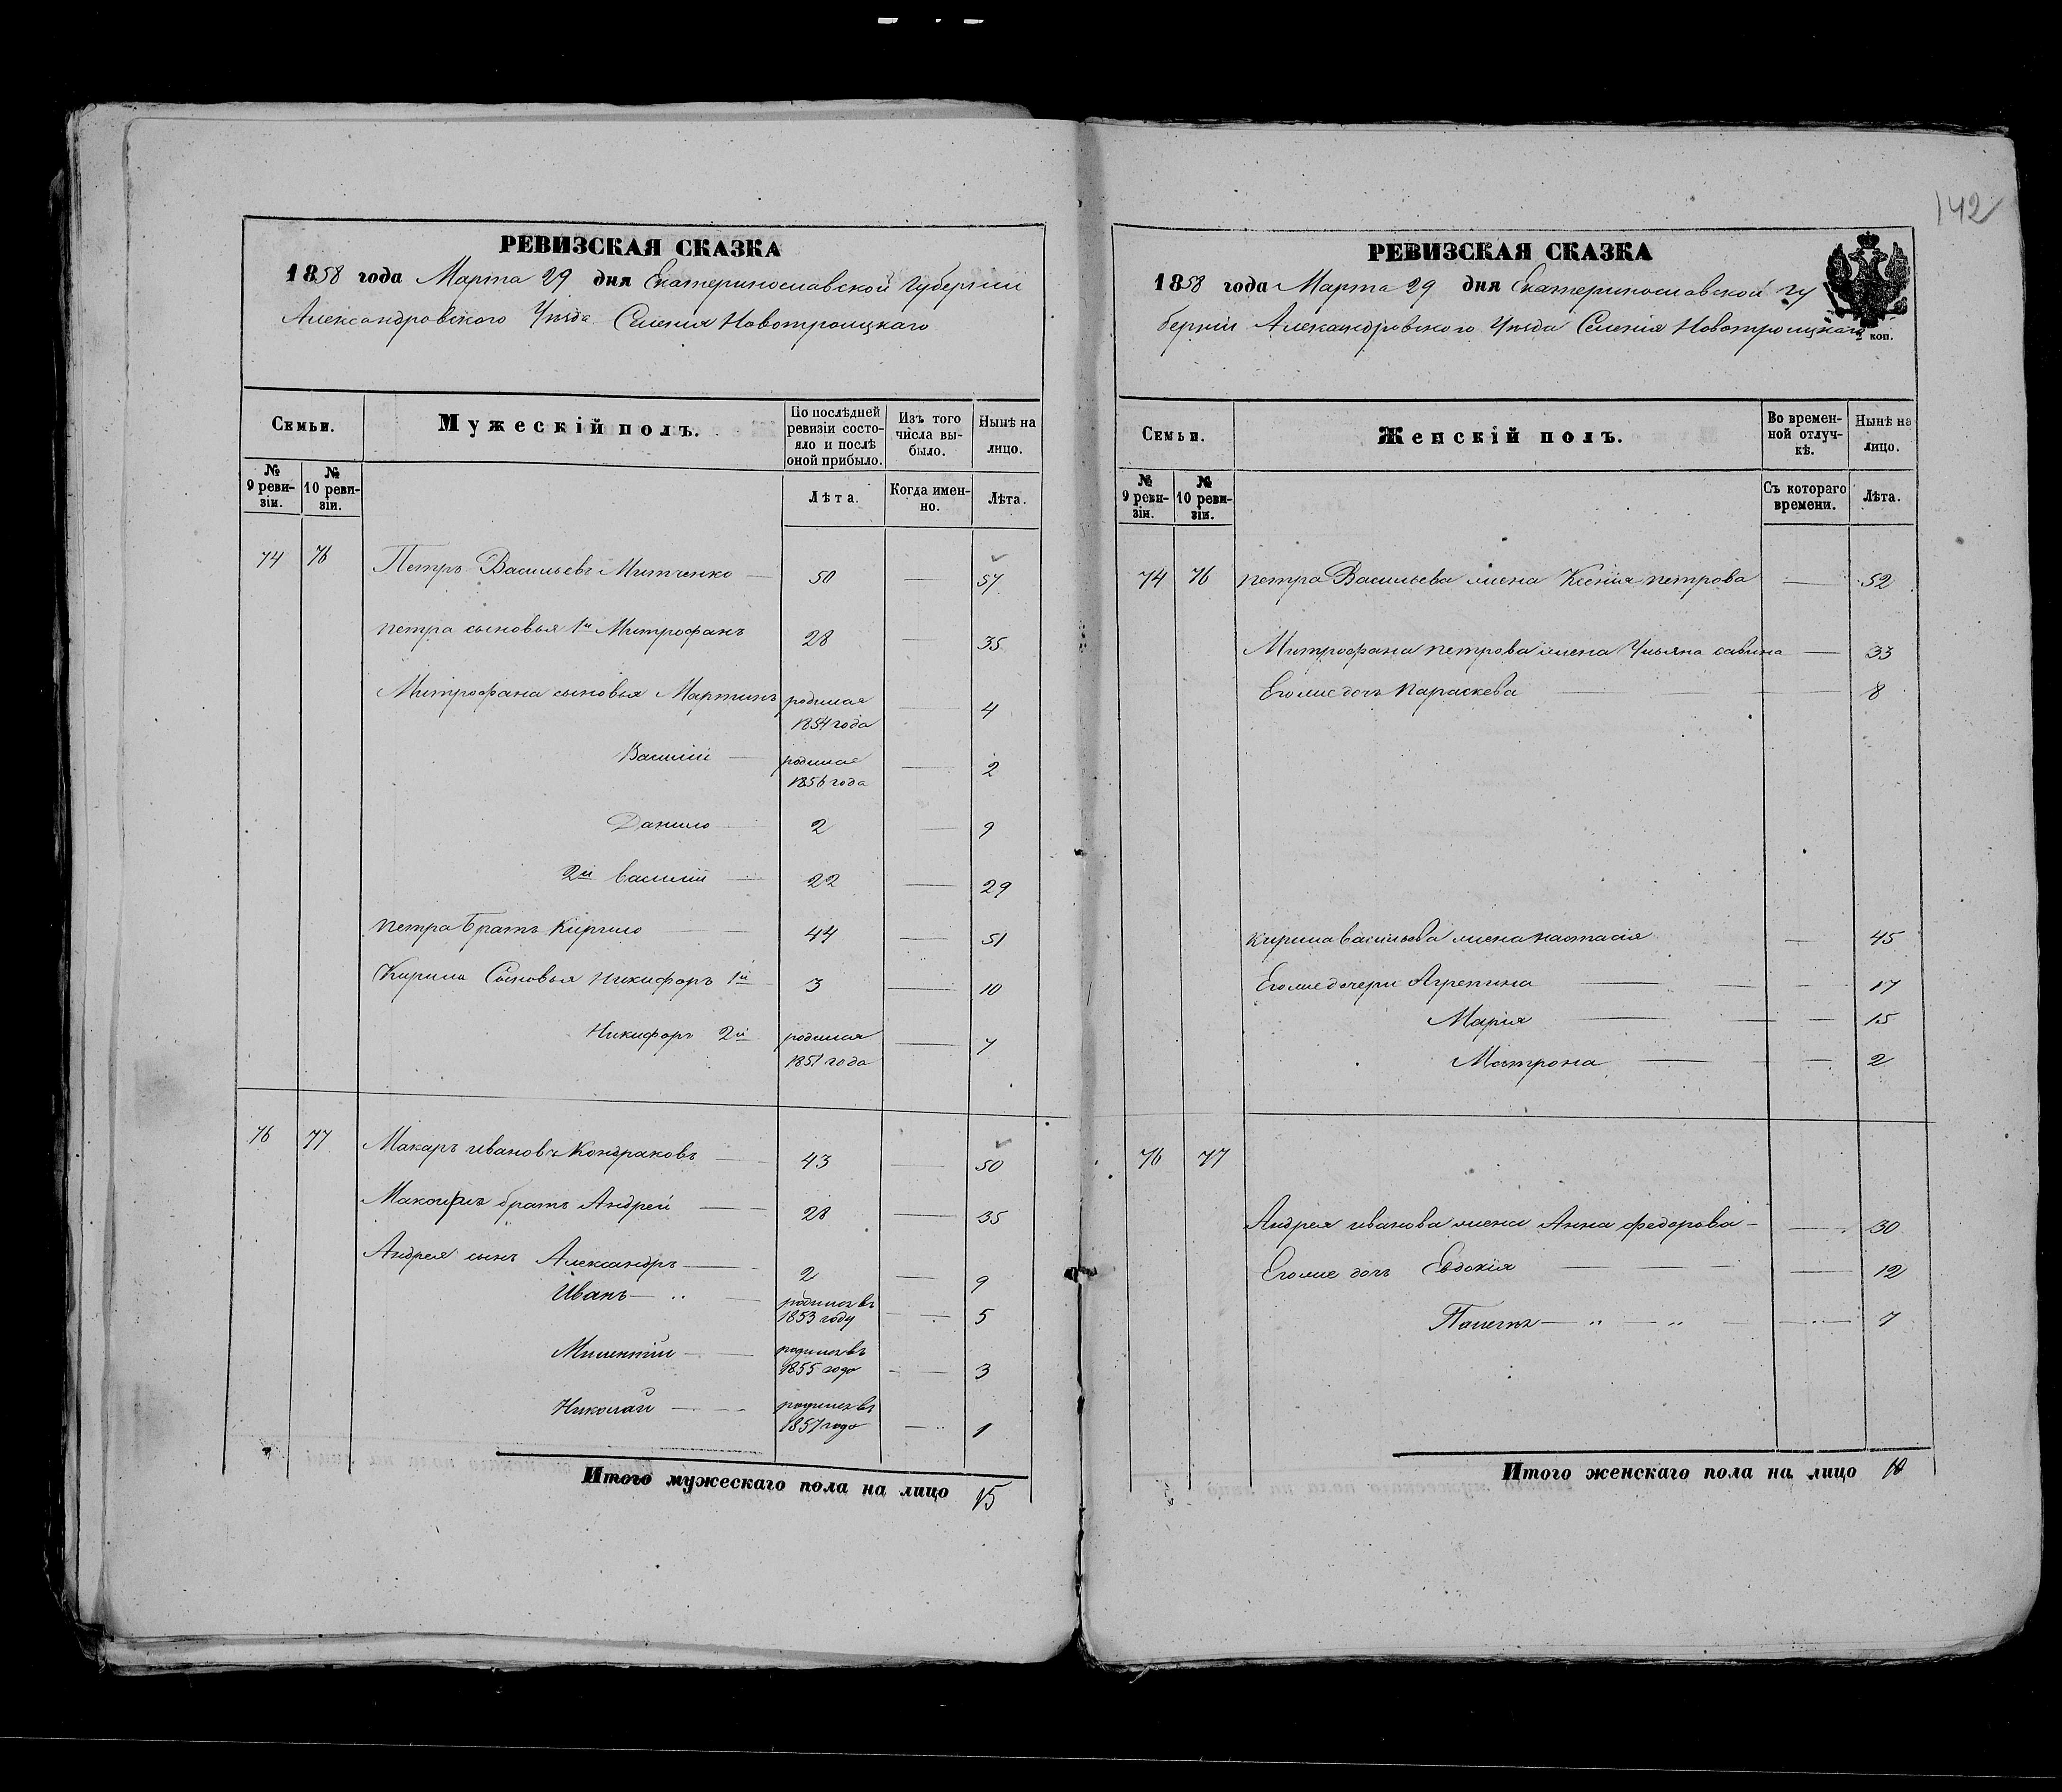 142
РЕВИЗСКАЯ СКАЗКА
1858 года Марта 29 дня Екатеринославской Губернии
Александровского Уѣзда Селения Новотроицкаго
Семьи.
Мужескій полъ.
По послѣдней ревизіи состояло и послѣ оной прибыло.
Изъ того числа выбыло.
Нынѣ на лицо.
№ 9 ревизіи.
№ 10 ревизіи.
Лѣта.
Когда именно.
Лѣта.
74 76 Петръ Васильевъ Митченко — 50 — 57
петра сыновья 1й Митрофанъ 28 — 35
Митрофана сыновья Мартинъ родился 1854 года — 4
Василій — родился 1856 года — 2
Данило 2 — 9
2й василій — 22 — 29
петра братъ Кирило 44 — 51
Кирила Сыновья Никифоръ 1й 3 — 10
Никифоръ 2й родился 1851 года — 7
76 77 Макаръ ивановъ Кондраковъ — 43 — 50
братъ Андрей — 28 — 35
Андрея сынъ Александръ — 2 — 9
Иванъ — родился въ 1853 году — 5
Милентій — родился въ 1855 году — 3
Николай — родился въ 1857 году — 1
Итого мужескаго пола на лицо 15
РЕВИЗСКАЯ СКАЗКА
1858 года Марта 29 дня Екатеринославской гу
берніи Александровского Уѣзда Селенія Новотроицкаго
коп.
Семьи.
Женскій полъ.
Во временной отлучкѣ.
Нынѣ на лицо.
№ 9 ревизіи.
№ 10 ревизіи.
Съ котораго времени.
Лѣта.
74 76 петра Васильева жена Ксенія петрова — 52
Митрофана петрова жена Ульяна савина — 33
Егоже дочь параскева — 8
кирила васильева жена настасія — 45
Егоже дочери Агрепина — 17
Марія — 15
Матрона — 2
76 77
Андрея иванова жена Анна федорова — 30
Егоже дочь Евдокія — 12
7
Итого женскаго пола на лицо 10